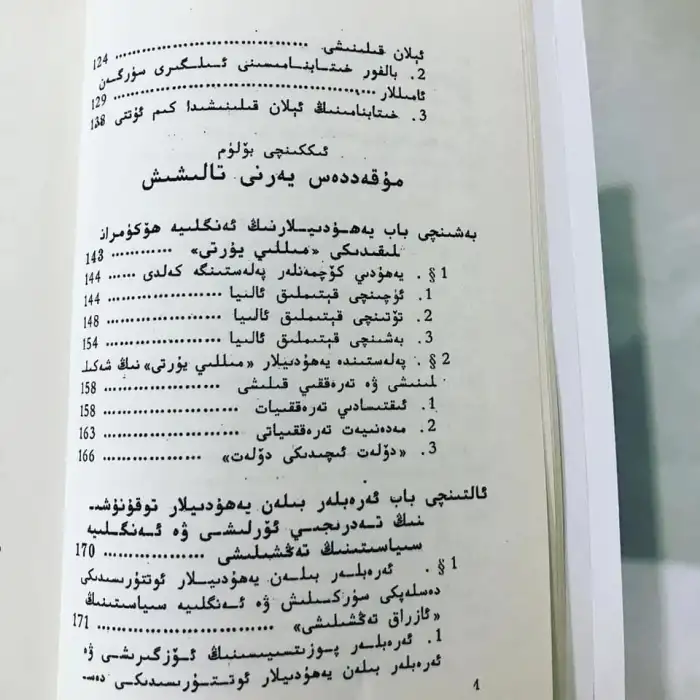 ئېلان قىلىنىشى ........................ 124
2. بالفور خىتابنامىسىنى ئىلگىرى سۈرگەن
ئامىللار ........................ 129
3. خىتابنامىنىڭ ئېلان قىلىنىشىدا كىم ئۇتتى 138
ئىككىنچى بۆلۈم
مۇقەددەس يەرنى تالىشىش
بەشىنچى باب يەھۇدىيلارنىڭ ئەنگلىيە ھۆكۈمران
لىقىدىكى «مىللىي يۇرتى» ............ 143
§ 1 . يەھۇدىي كۆچمەنلەر پەلەستىنگە كەلدى ...... 144
1. ئۈچىنچى قېتىملىق ئالىيا .................... 144
2. تۆتىنچى قېتىملىق ئالىيا .................... 148
3. بەشىنچى قېتىملىق ئالىيا .................... 154
§ 2 . پەلەستىندە يەھۇدىيلار «مىللىي يۇرتى» نىڭ شەكىل
لىنىشى ۋە تەرەققىي قىلىشى .................... 158
1. ئىقتىسادىي تەرەققىيات .................... 158
2. مەدەنىيەت تەرەققىياتى .................... 163
3. «دۆلەت ئىچىدىكى دۆلەت» .................. 166
ئالتىنچى باب ئەرەبلەر بىلەن يەھۇدىيلار توقۇنۇشى‍
نىڭ تەدرىجىي ئۆرلىشى ۋە ئەنگلىيە
سىياسىتىنىڭ تەڭشىلىشى .................. 170
§ 1 . ئەرەبلەر بىلەن يەھۇدىيلار ئوتتۇرىسىدىكى
دەسلەپكى سۈركىلىش ۋە ئەنگلىيە سىياسىتىنىڭ
«ئازراق تەڭشىلىشى» ........................ 171
1. ئەرەبلەر پوزىتسىيىسىنىڭ ئۆزگىرىشى ۋە
ئەرەبلەر بىلەن يەھۇدىيلار ئوتتۇرىسىدىكى دەس‍
4